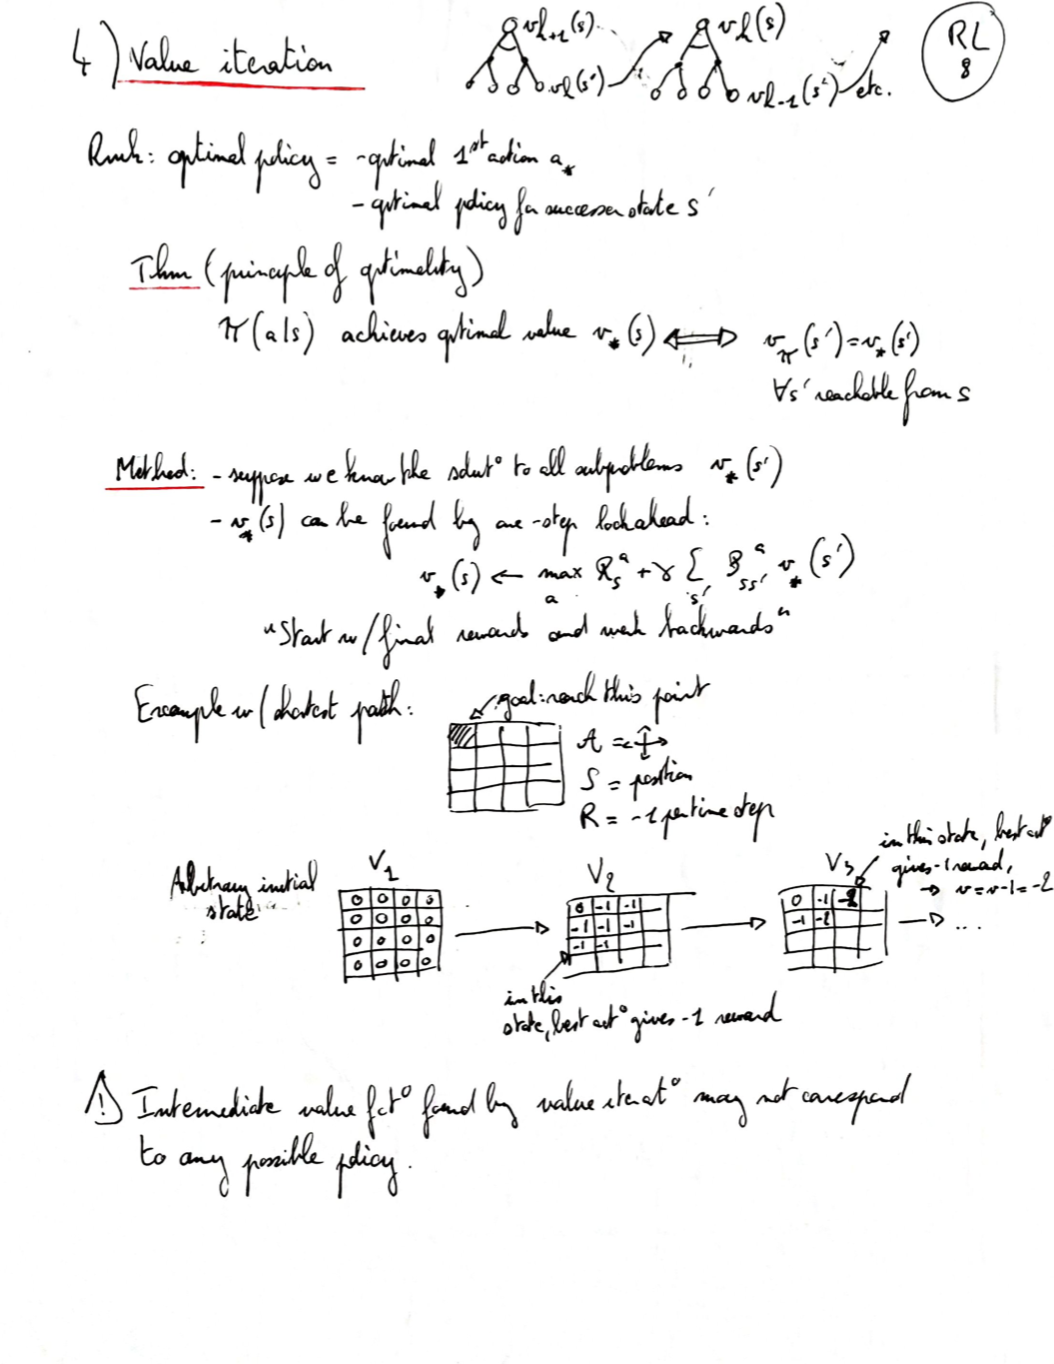 4) Value iteration
v_{k+1}(s)
v_k(s')
v_k(s)
v_{k-1}(s')
etc.
RL
8
Rmk: optimal policy = - optimal 1st action a_*
- optimal policy for successor state s'
Thm (principle of optimality)
π(a|s) achieves optimal value v_*(s) ⟺ v_π(s') = v_*(s')
∀s' reachable from s
Method: - suppose we know the solut° to all subproblems v_*(s')
- v_*(s) can be found by one-step lookahead:
v_*(s) ← max_a R_s^a + γ Σ_{s'} P_{ss'}^a v_*(s')
"Start w/ final rewards and work backwards"
Example w/ shortest path:
goal: reach this point
A =
S = position
R = -1 per time step
Arbitrary initial
state
V_1
0 0 0 0
0 0 0 0
0 0 0 0
0 0 0 0
V_2
0 -1 -1
-1 -1 -1
-1 -1
in this
state, best act° gives -1 reward
V_3
0 -1 -2
-1 -2
in this state, best act°
gives -1 reward,
→ v = v-1 = -2
...
⚠ Intermediate value fct° found by value iterat° may not correspond
to any possible policy.